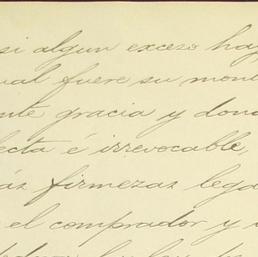 si algun exceso hay
ual fuere su mont
nte gracia y dona
fecta é irrevocable,
ás firmezas lega
el comprador y